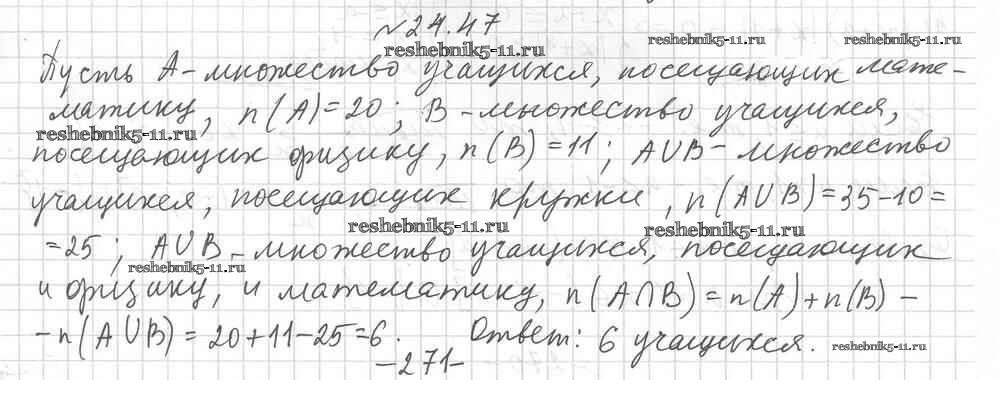 №24.47
reshebnik5-11.ru reshebnik5-11.ru reshebnik5-11.ru
Пусть А - множество учащихся, посещающих мате-
матику, n(A)=20; В - множество учащихся,
reshebnik5-11.ru
посещающих физику, n(B)=11; A∪B - множество
учащихся, посещающих кружки, n(A∪B)=35-10=
reshebnik5-11.ru reshebnik5-11.ru
=25; A∪B - множество учащихся, посещающих
reshebnik5-11.ru
и физику, и математику, n(A∩B)=n(A)+n(B)-
-n(A∪B)=20+11-25=6. Ответ: 6 учащихся.
reshebnik5-11.ru
-271-